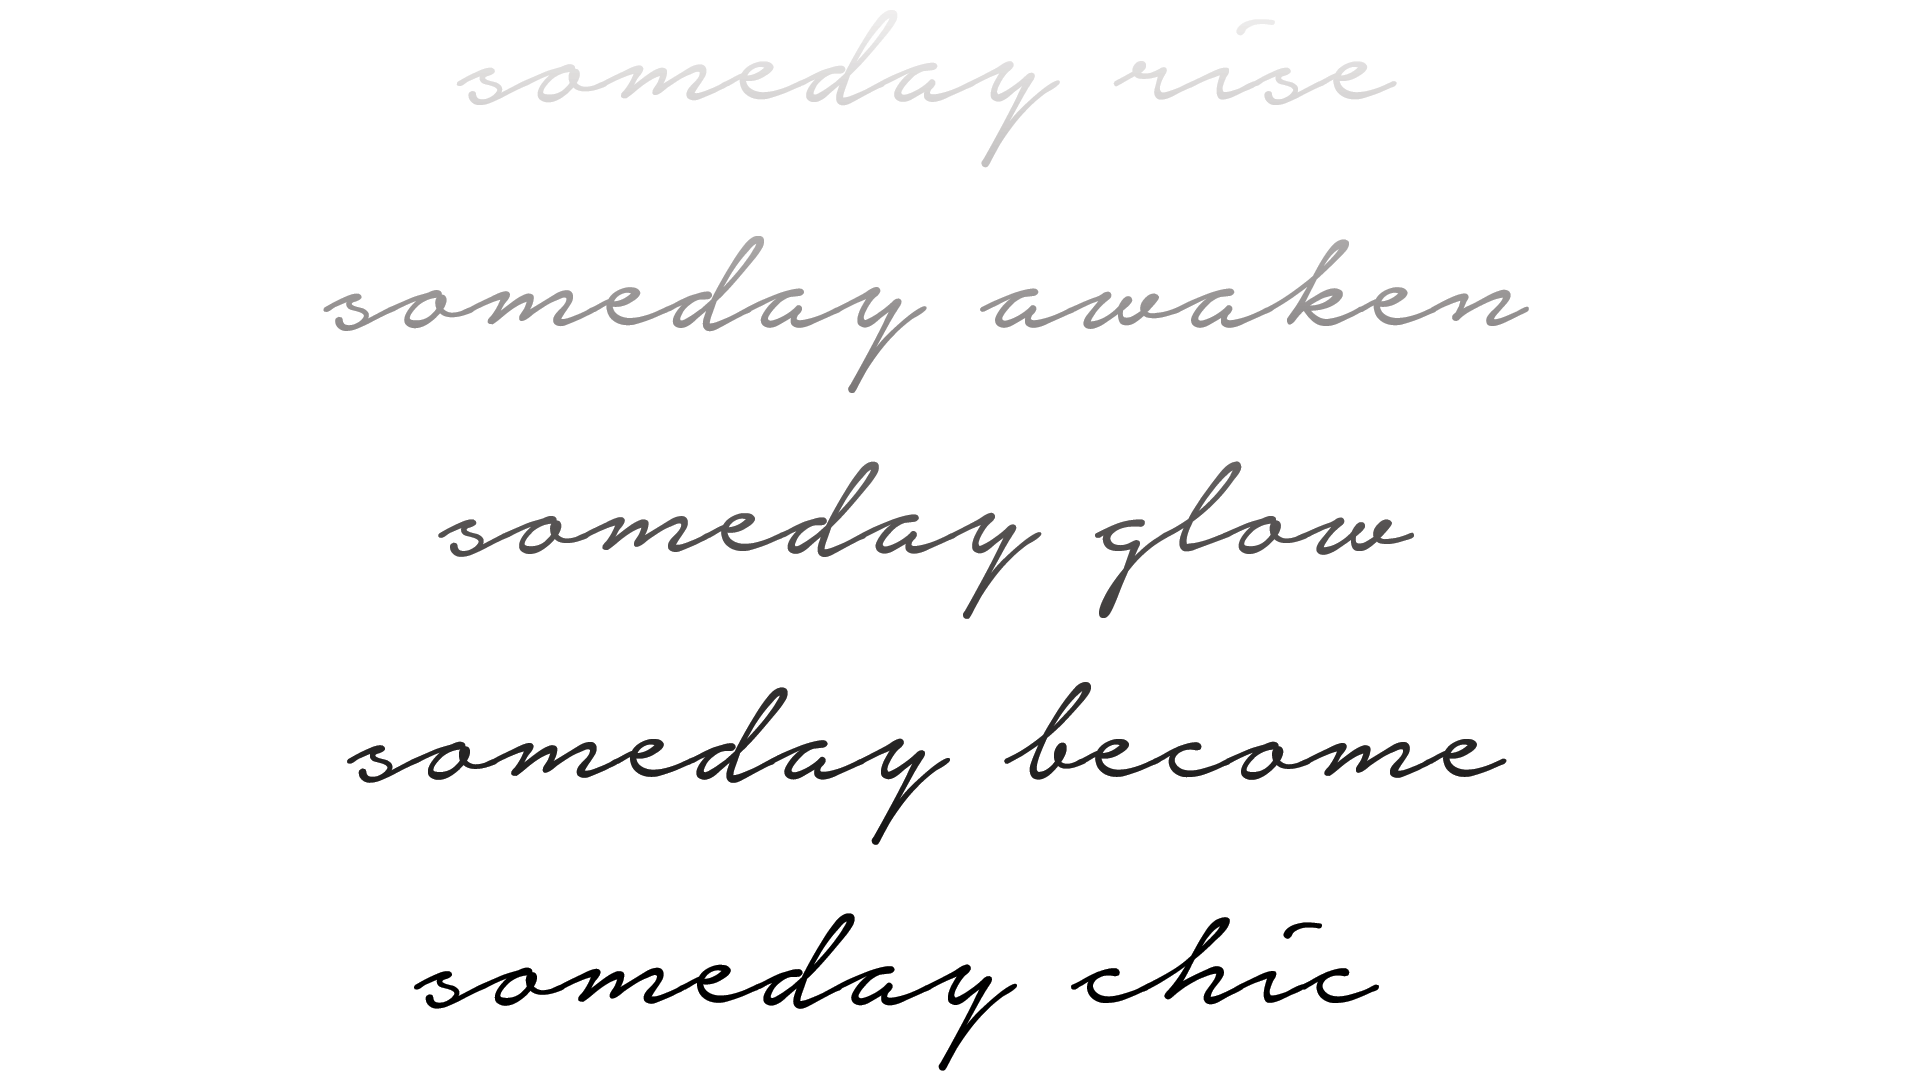 someday rise
someday awaken
someday glow
someday become
someday chic